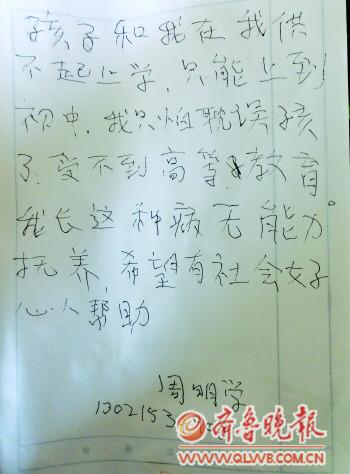 孩子和我在我供
不起上学,只能上到
初中,我只怕耽误孩
子,受不到高等教育
我长这种病无能力。
抚养,希望有社会好
心人帮助
周明学
1302153
齐鲁晚报
WWW.QLWB.COM.CN